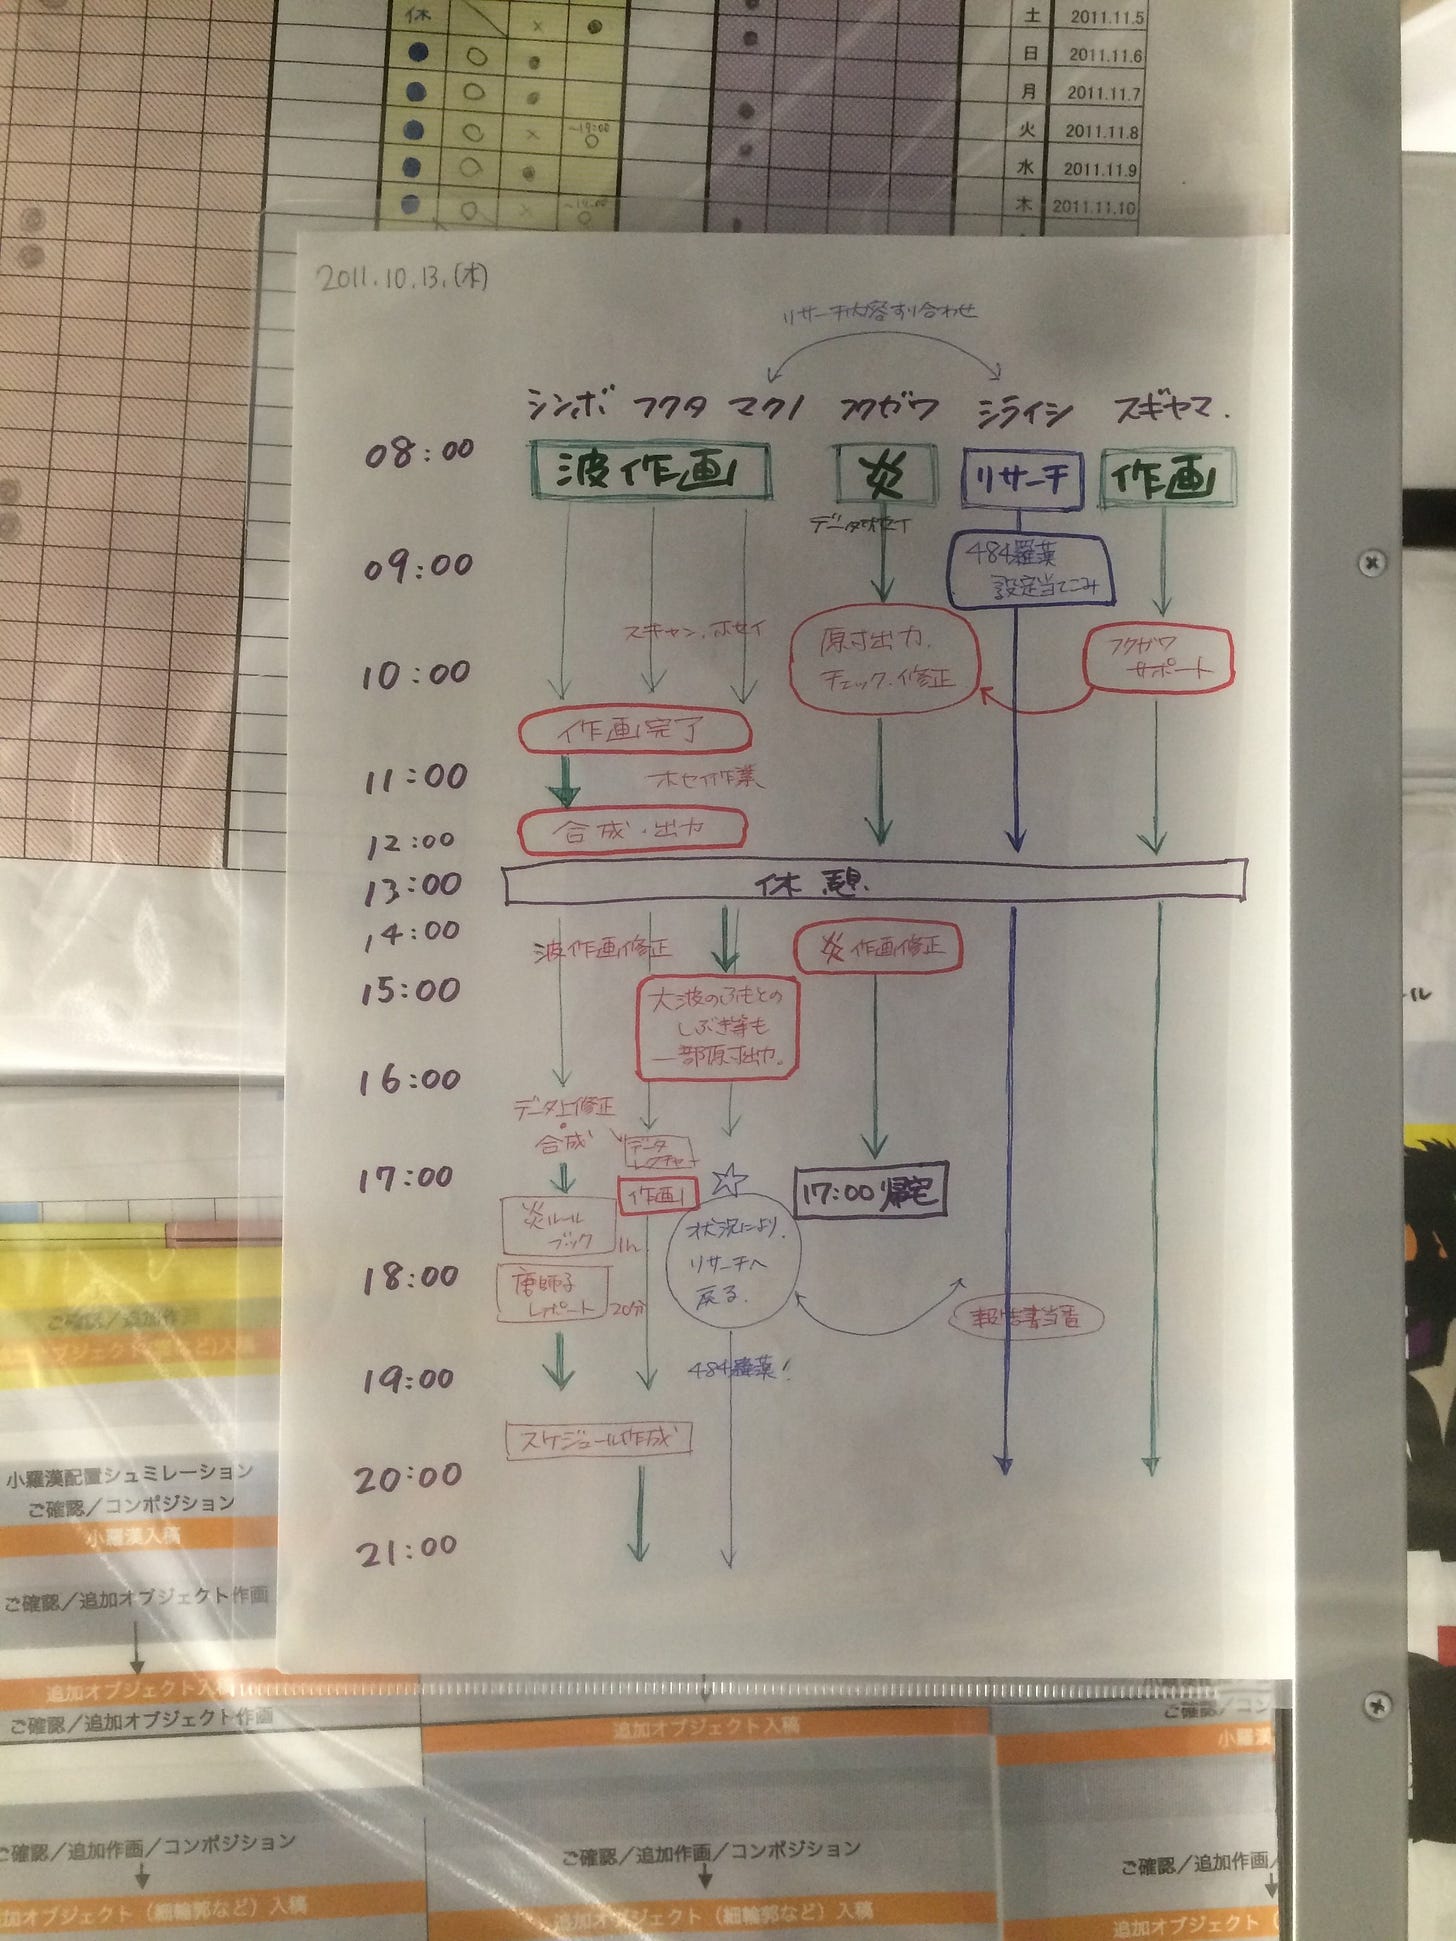 休
土 2011.11.5
日 2011.11.6
月 2011.11.7
火 2011.11.8
水 2011.11.9
木 2011.11.10
~19:00
2011.10.13.(木)
リサーチ内容すり合わせ
シンボ フクタ マクノ フクガワ シライシ スギヤマ.
08:00
波作画 炎 リサーチ 作画
データホセイ
09:00
484羅漢
設定当てこみ
スキャン.ホセイ
原寸出力.
チェック.修正
フクガワ
サポート
10:00
作画完了
11:00
ホセイ作業
合成・出力
12:00
13:00
休憩.
14:00
波作画修正
炎作画修正
15:00
大波のふもとの
しぶき等も
一部原寸出力。
16:00
データ上修正
合成
データ
レクチャー
17:00
作画
17:00帰宅
炎ルール
ブック
1h
状況により.
リサーチへ
戻る.
18:00
唐獅子
レポート
20分
報告書当番
19:00
484羅漢!
スケジュール作成
20:00
21:00
ご確認/追加作画
小羅漢配置シュミレーション
ご確認/コンポジション
小羅漢入稿
ご確認/追加オブジェクト作画
追加オブジェクト入稿
ご確認/追加オブジェクト作画
追加オブジェクト入稿
ご確認/コン
小羅漢
ご確認/追加作画/コンポジション
ご確認/追加作画/コンポジション
ご確認/追加作画/
加オブジェクト(細輪郭など)入稿
追加オブジェクト(細輪郭など)入稿
追加オブジェクト(